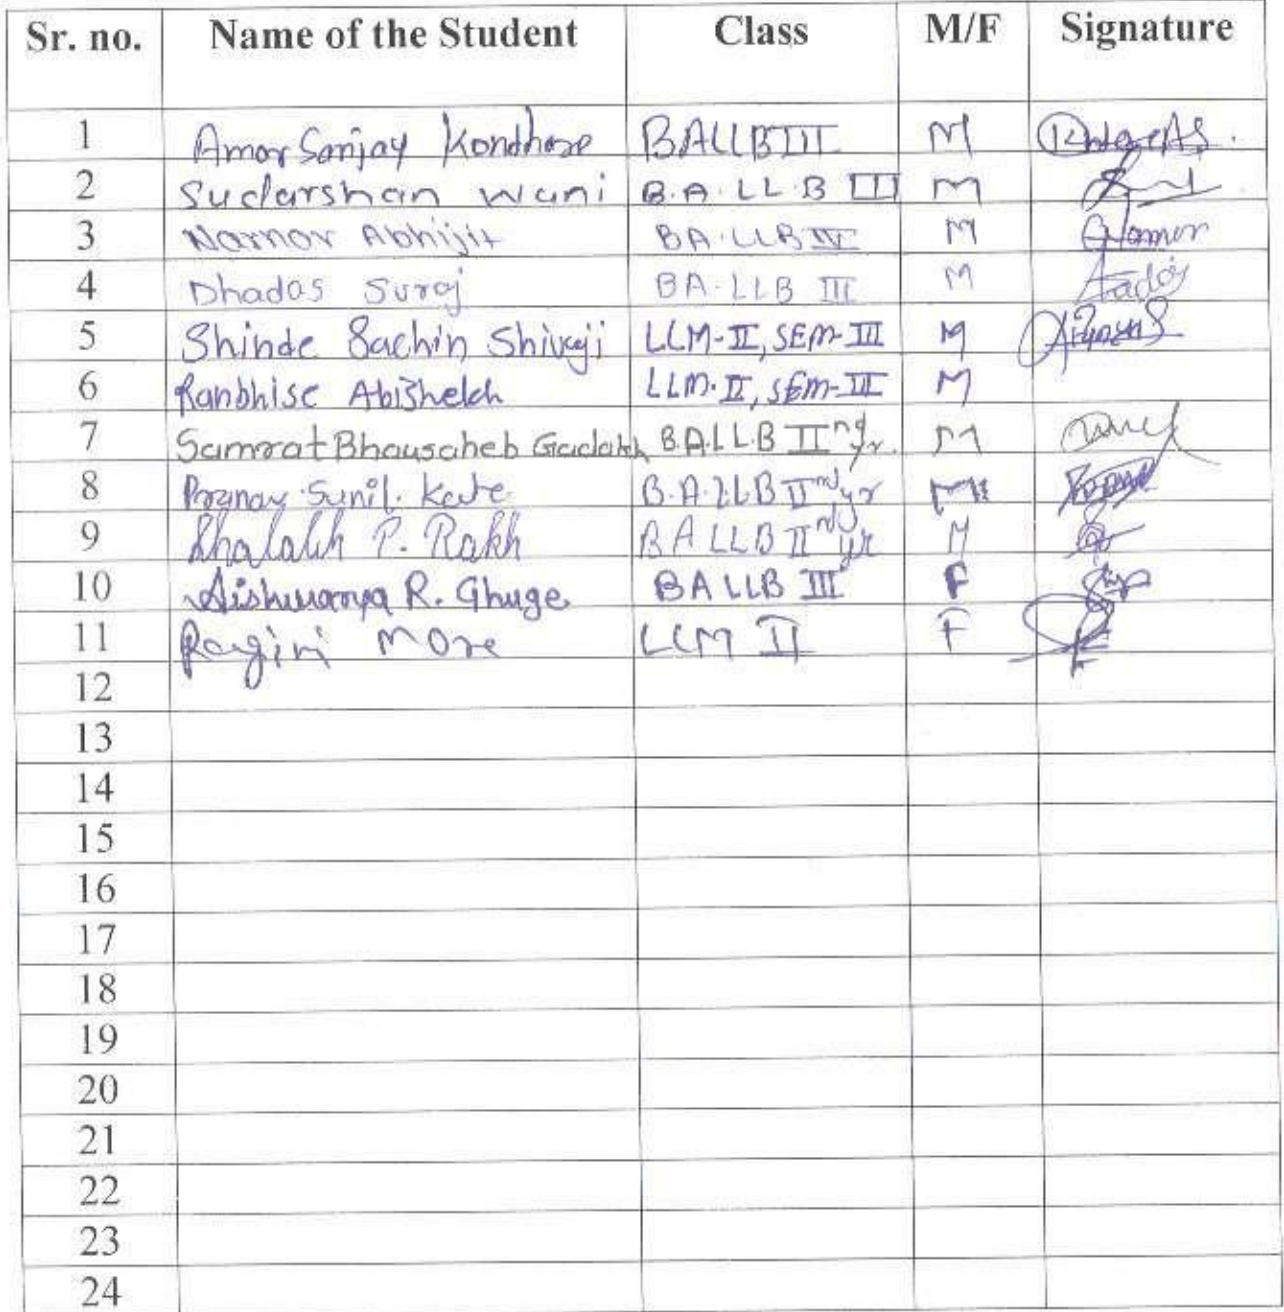 Sr. no. Name of the Student Class M/F Signature
1 Amor Sanjay Kondhare BALLB III M
2 Sudarshan Wani B.A.LL.B III M
3 Narnor Abhijit BA.LLB IV M
4 Dhadas Suraj BA.LLB III M
5 Shinde Sachin Shivaji LLM-II, SEM-III M
6 Ranbhise Abishekh LLM-II, SEM-III M
7 Samrat Bhausaheb Gadakh B.A.L.L.B IInd yr. M
8 Pranay Sunil. Kate B.A.LLB IInd yr M
9 P. Rakh BALLB IInd yr M
10 Aishwarya R. Ghuge BALLB III F
11 Ragini More LLM II F
12
13
14
15
16
17
18
19
20
21
22
23
24